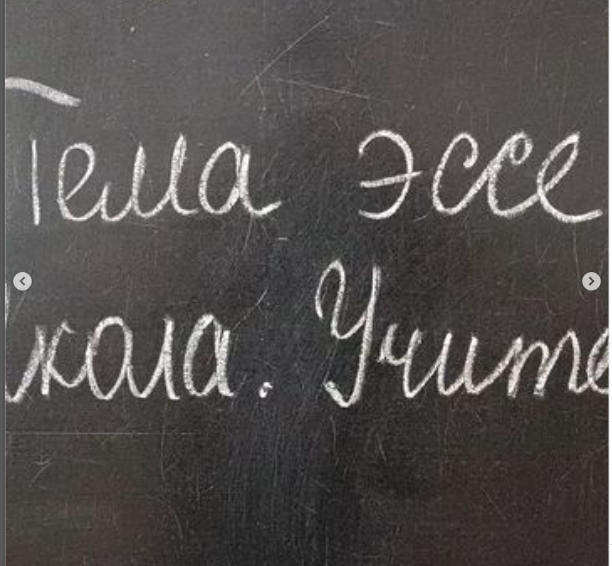 Тема эссе
кола. Учите